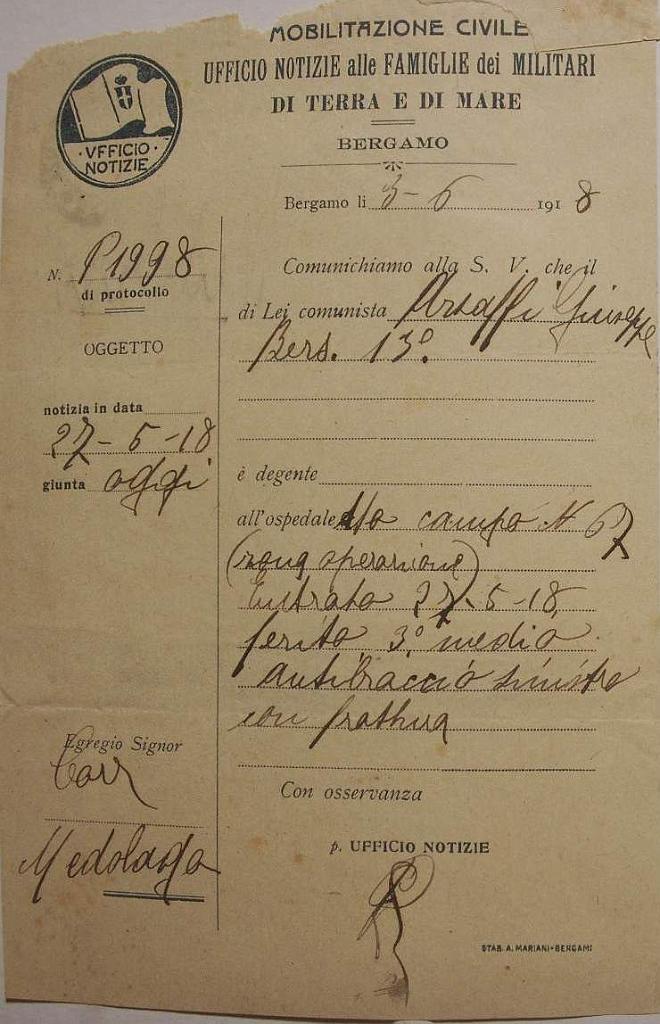 MOBILITAZIONE CIVILE
UFFICIO NOTIZIE alle FAMIGLIE dei MILITARI
DI TERRA E DI MARE
BERGAMO
· VFFICIO ·
NOTIZIE
Bergamo li 3-6 1918
N. P1998
di protocollo
OGGETTO
notizia in data
27-5-18
giunta oggi
Comunichiamo alla S. V. che il
di Lei comunista Arsuffi Giuseppe
Bers. 13°.
è degente
all'ospedale da campo N 67
(zona operazione)
Entrato 27-5-18
ferito 3° medio
antibraccio sinistro
con frattura
Egregio Signor
Medolago
Con osservanza
p. UFFICIO NOTIZIE
STAB. A. MARIANI-BERGAMO